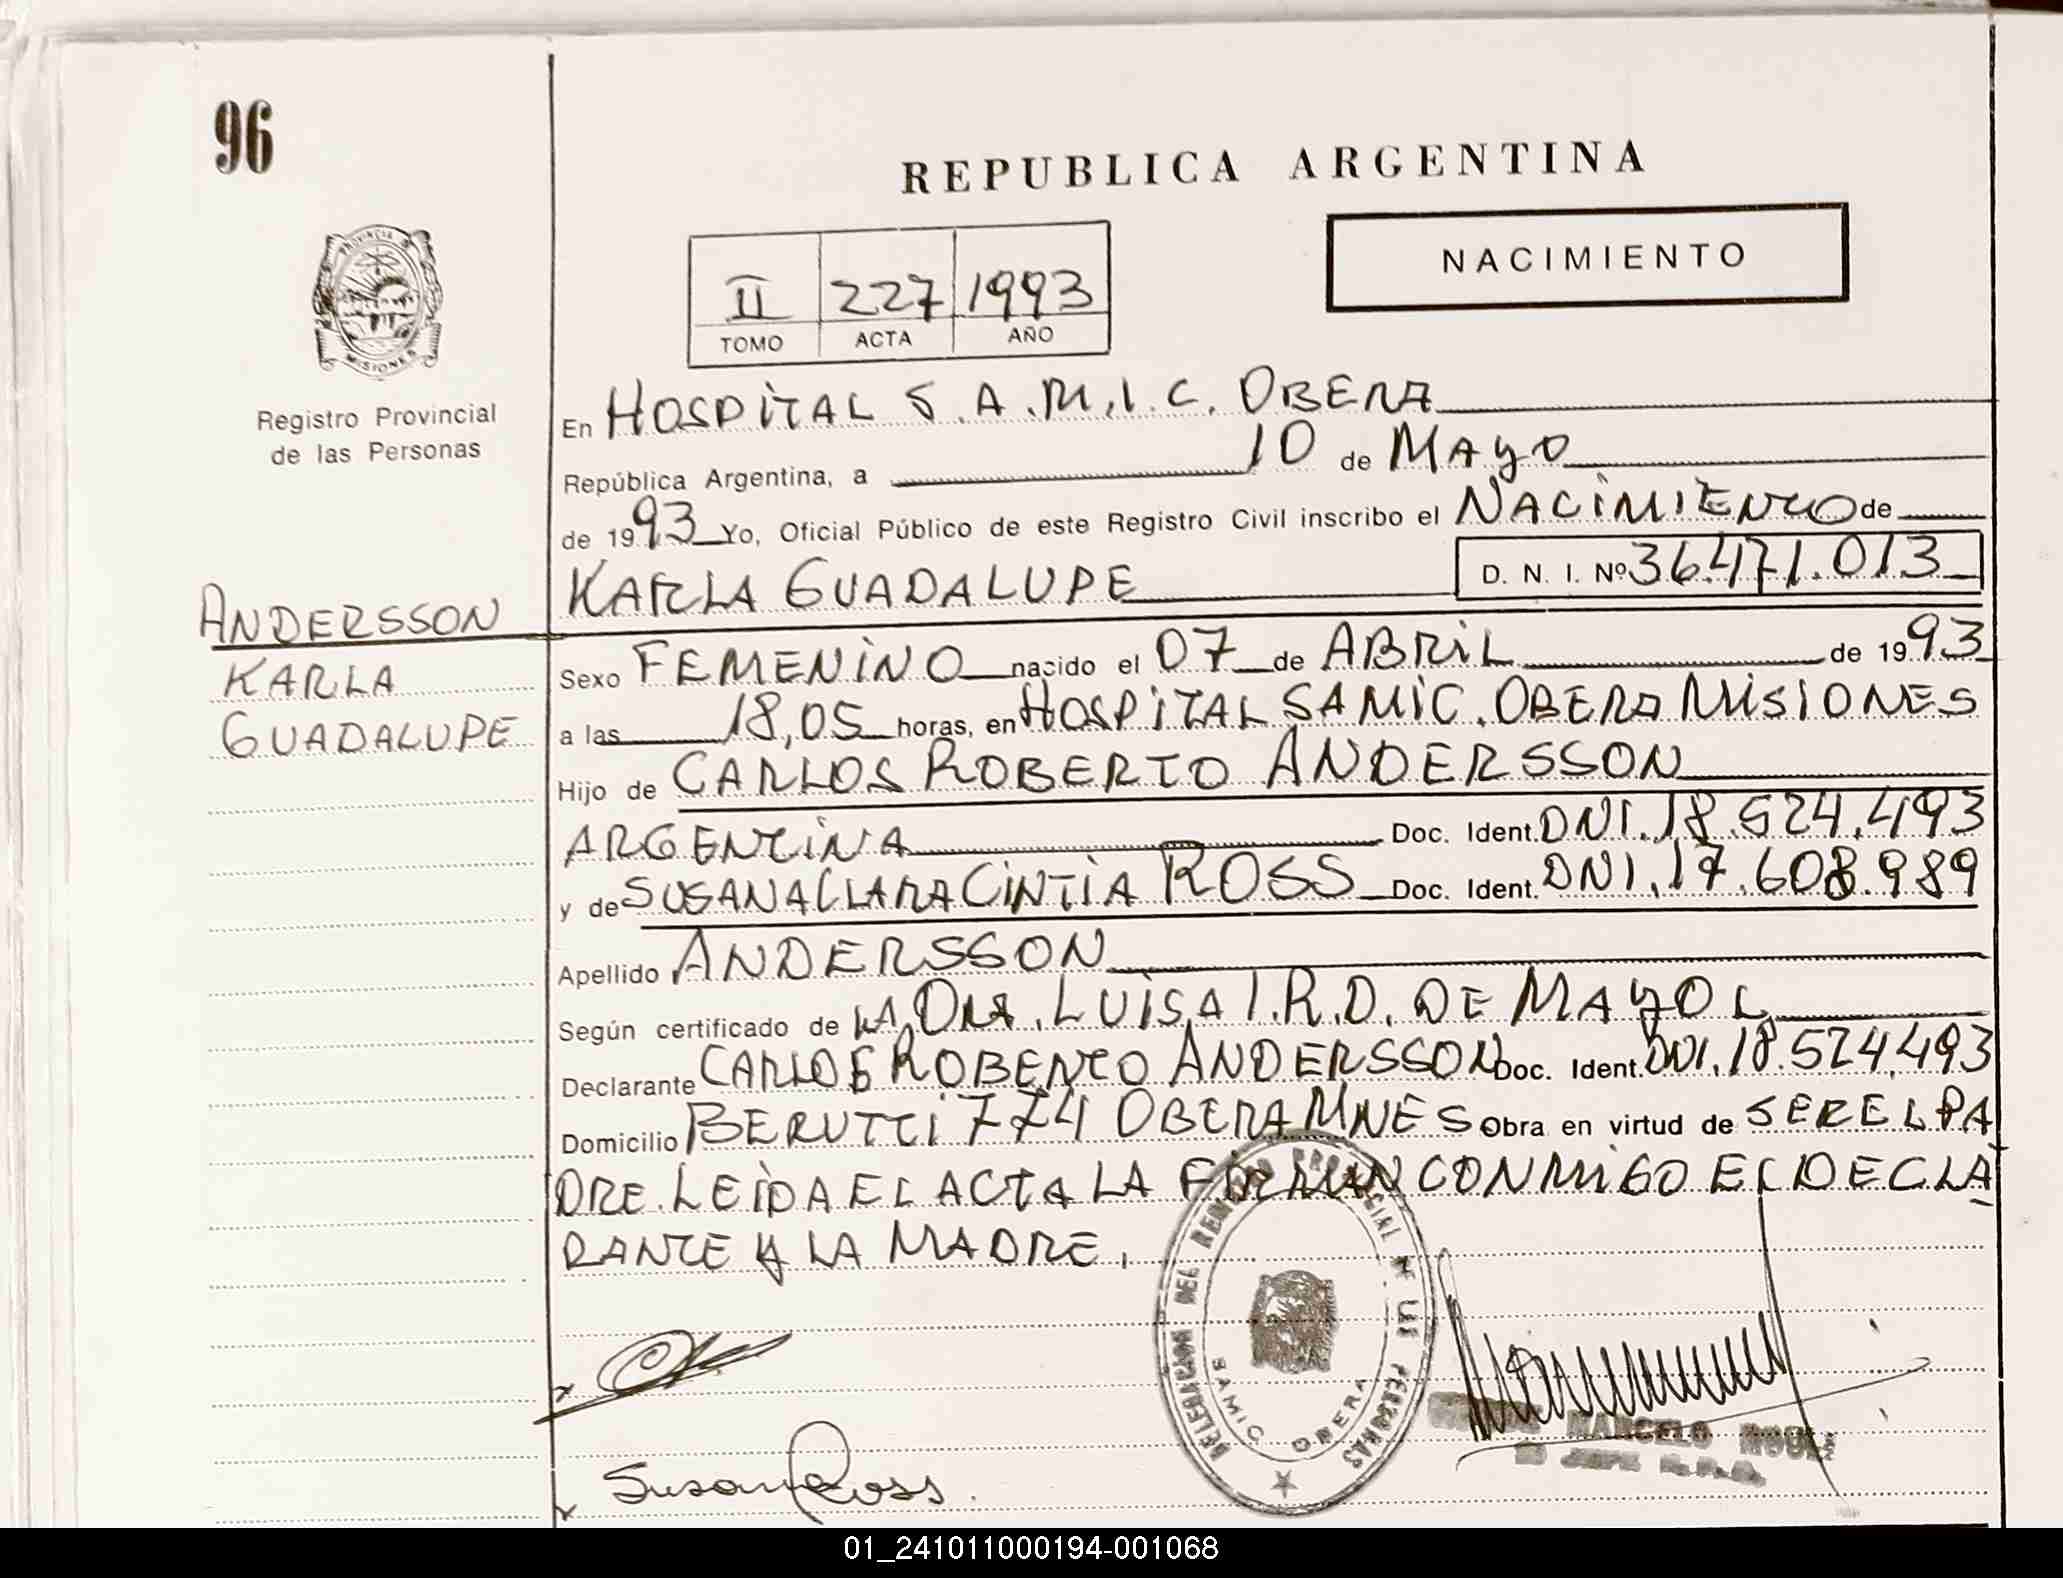 96
REPUBLICA ARGENTINA
NACIMIENTO
II 227 1993
TOMO ACTA AÑO
PROVINCIA DE MISIONES
Registro Provincial
de las Personas
En HOSPITAL S.A.M.I.C. OBERA
República Argentina, a 10 de MAYO
de 1993 Yo, Oficial Público de este Registro Civil inscribo el NACIMIENTO de
KARLA GUADALUPE D. N. I. Nº 36.471.013
ANDERSSON
KARLA
GUADALUPE
Sexo FEMENINO nacido el 07 de ABRIL de 1993
a las 18,05 horas, en HOSPITAL SAMIC. OBERA MISIONES
Hijo de CARLOS ROBERTO ANDERSSON
ARGENTINA Doc. Ident. DNI. 18.524.493
y de SUSANA CLARA CINTIA ROSS Doc. Ident. DNI. 17.608.989
Apellido ANDERSSON
Según certificado de LA DRA. LUISA I.R.D. DE MAYOL
Declarante CARLOS ROBERTO ANDERSSON Doc. Ident. DNI. 18.524.493
Domicilio BERUTTI 774 OBERA MNES Obra en virtud de SER EL PA
DRE. LEIDA EL ACTA LA FIRMAN CONMIGO EL DECLA
RANTE Y LA MADRE.
DELEGACION DEL REGISTRO PROVINCIAL DE LAS PERSONAS
SAMIC OBERA
MARCELO
Susana Ross
01_241011000194-001068